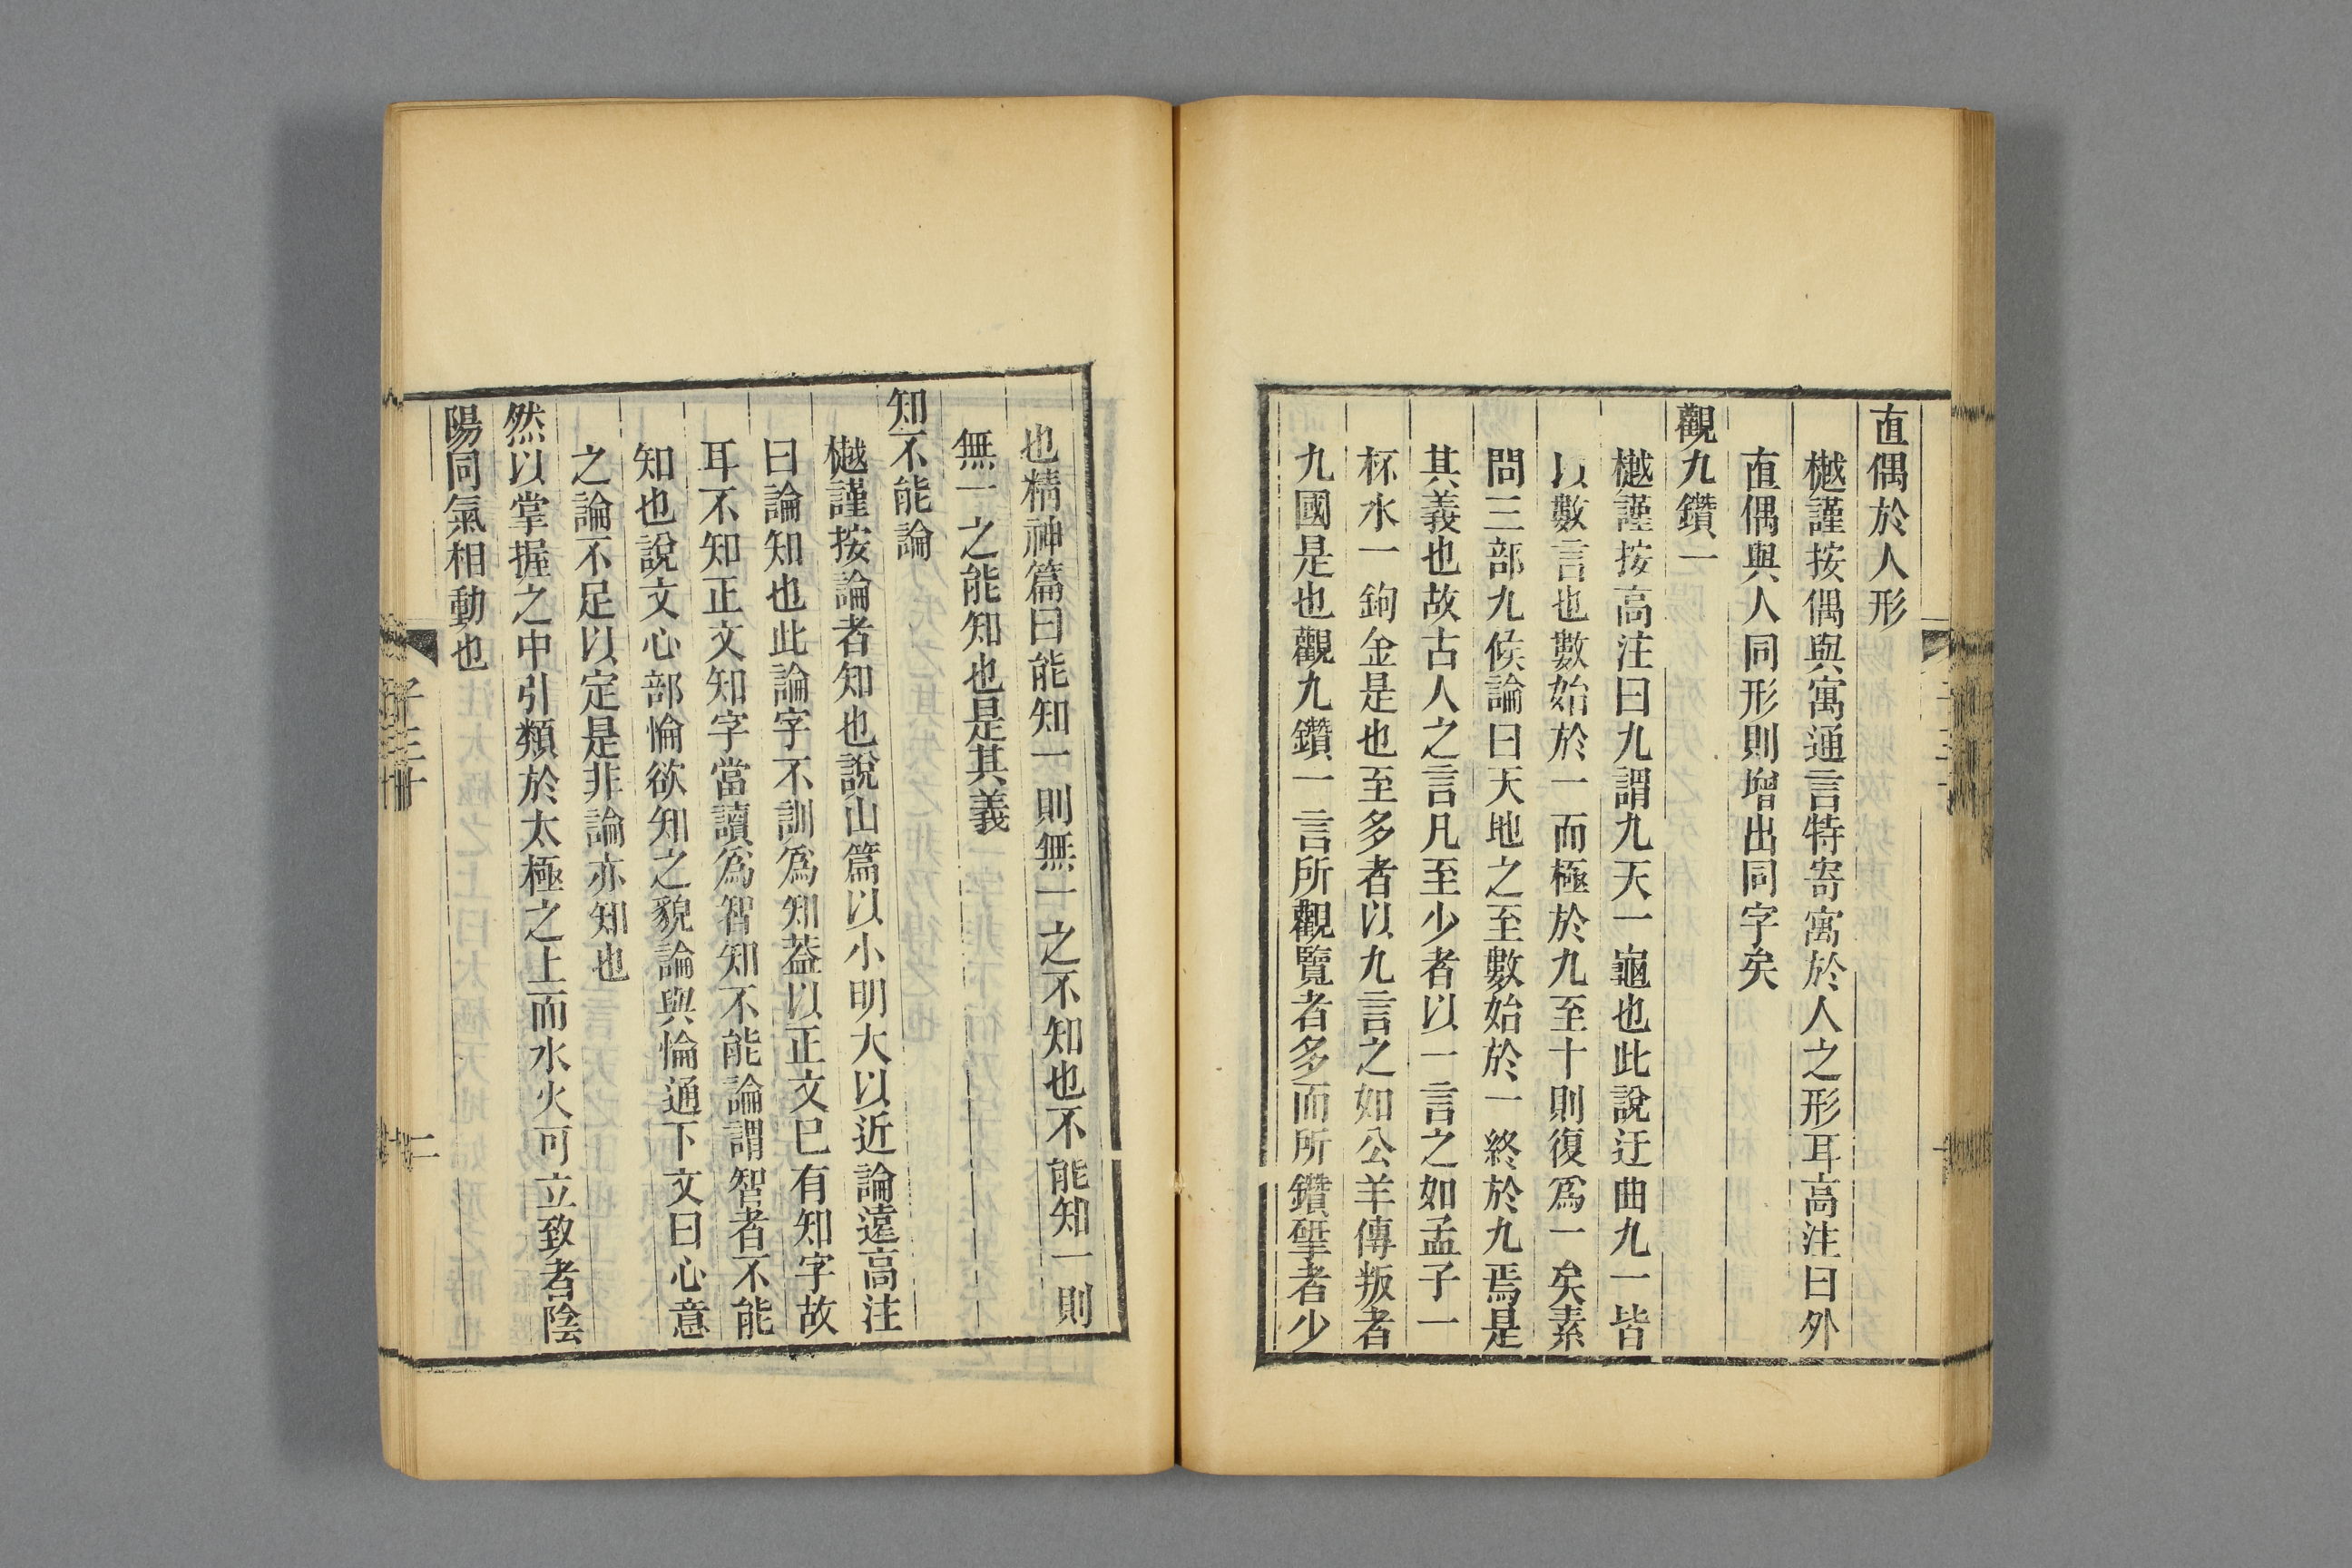 直偶於人形
樾謹按偶與寓通言特寄寓於人之形耳高注曰外
直偶與人同形則增出同字矣
觀九鑽一
樾謹按高注曰九謂九天一龜也此說迂曲九一皆
以數言也數始於一而極於九至十則復爲一矣素
問三部九候論曰天地之至數始於一終於九焉是
其義也故古人之言凡至少者以一言之如孟子一
杯水一鉤金是也至多者以九言之如公羊傳叛者
九國是也觀九鑽一言所觀覽者多而所鑽揅者少
也精神篇曰能知一則無一之不知也不能知一則
無一之能知也是其義
知不能論
樾謹按論者知也說山篇以小明大以近論遠高注
曰論知也此論字不訓爲知葢以正文已有知字故
耳不知正文知字當讀爲智知不能論謂智者不能
知也說文心部惀欲知之貌論與惀通下文曰心意
之論不足以定是非論亦知也
然以掌握之中引類於太極之上而水火可立致者陰
陽同氣相動也
子三十
二